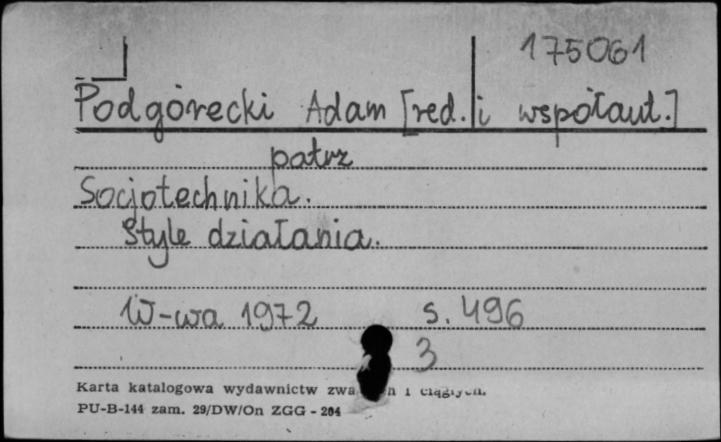 175061
Podgórecki Adam [red. i współaut.]
patrz
Socjotechnika.
Style działania.
W-wa 1972 s. 496
3
Karta katalogowa wydawnictw i ciągłych.
PU-B-144 zam. 29/DW/On ZGG - 204